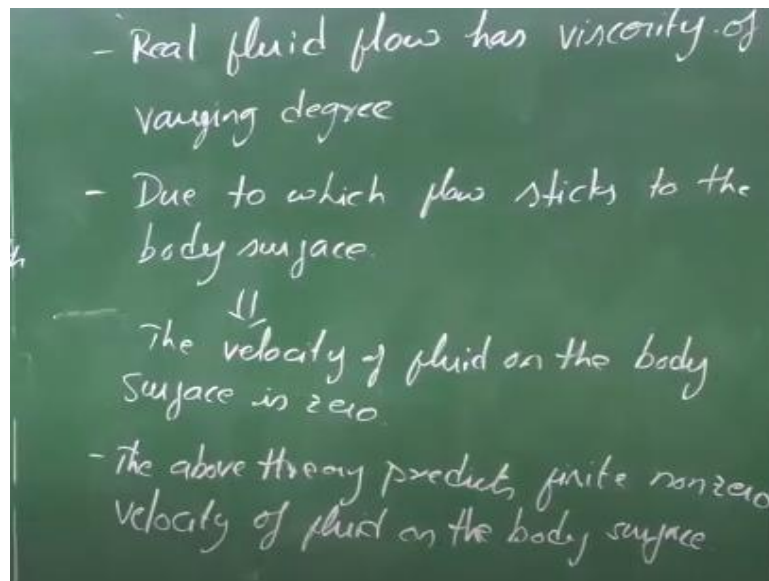 - Real fluid flow has viscosity of
varying degree
- Due to which flow sticks to the
body surface.
⇓
The velocity of fluid on the body
surface is zero
- The above theory predicts finite nonzero
velocity of fluid on the body surface.